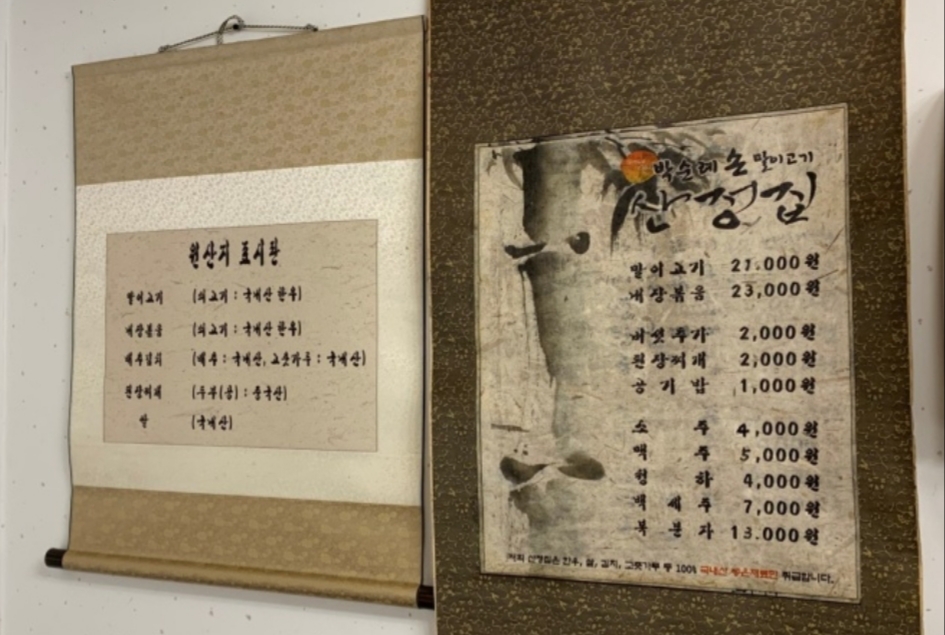 원산지 표시판
말이고기 (쇠고기 : 국내산 한우)
내장볶음 (쇠고기 : 국내산 한우)
배추김치 (배추 : 국내산, 고춧가루 : 국내산)
된장찌개 (두부(콩) : 중국산)
쌀 (국내산)
박순례 손 말이고기
산정집
말이고기 21.000원
내장볶음 23,000원
버섯추가 2,000원
된장찌개 2,000원
공기밥 1,000원
소주 4,000원
맥주 5,000원
청하 4,000원
백세주 7,000원
복분자 13.000원
저희 산정집은 한우, 쌀, 김치, 고춧가루 등 100% 국내산 좋은재료만 취급합니다.